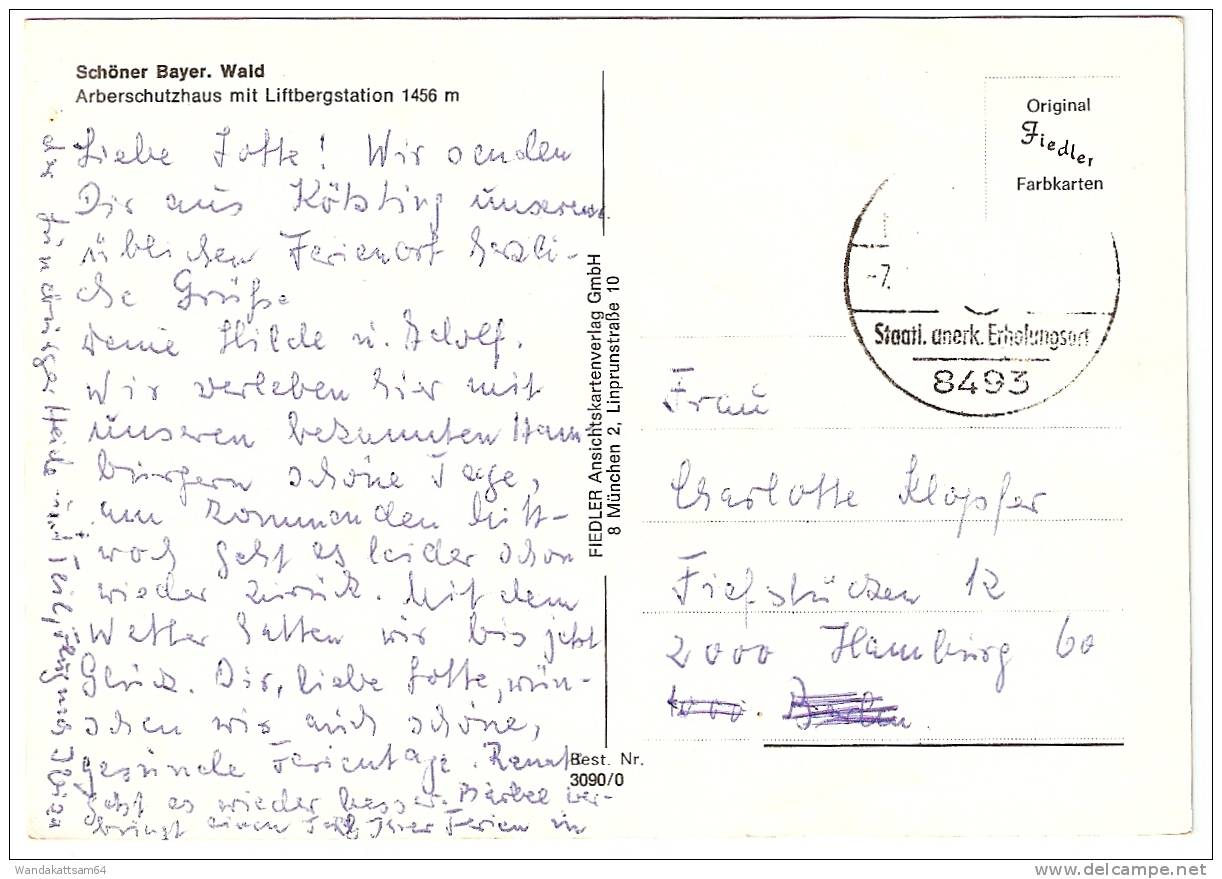 Schöner Bayer. Wald
Arberschutzhaus mit Liftbergstation 1456 m
Liebe Lotte! Wir senden
Dir aus Kötzting unserem
üblichen Ferienort herzli-
che Grüße
Deine Hilde u. Adolf.
Wir verleben hier mit
unseren bekannten Ham-
burgern schöne Tage,
am kommenden Mitt-
woch geht es leider schon
wieder zurück. Mit dem
Wetter hatten wir bis jetzt
Glück. Dir, liebe Lotte, wün-
schen wir auch schöne,
gesunde Ferientage. Renate
geht es wieder besser. Bärbel ver-
bringt einen Teil Ihrer Ferien in
der Lüneburger Heide mit
FIEDLER Ansichtskartenverlag GmbH
8 München 2, Linprunstraße 10
Best. Nr.
3090/0
Original
Fiedler
Farbkarten
-7.
Staatl. anerk. Erholungsort
8493
Frau
Charlotte Klopfer
Tiefstücken 12
2000 Hamburg 60
1000 Berlin.
Wandakattsam64
www.delcampe.net